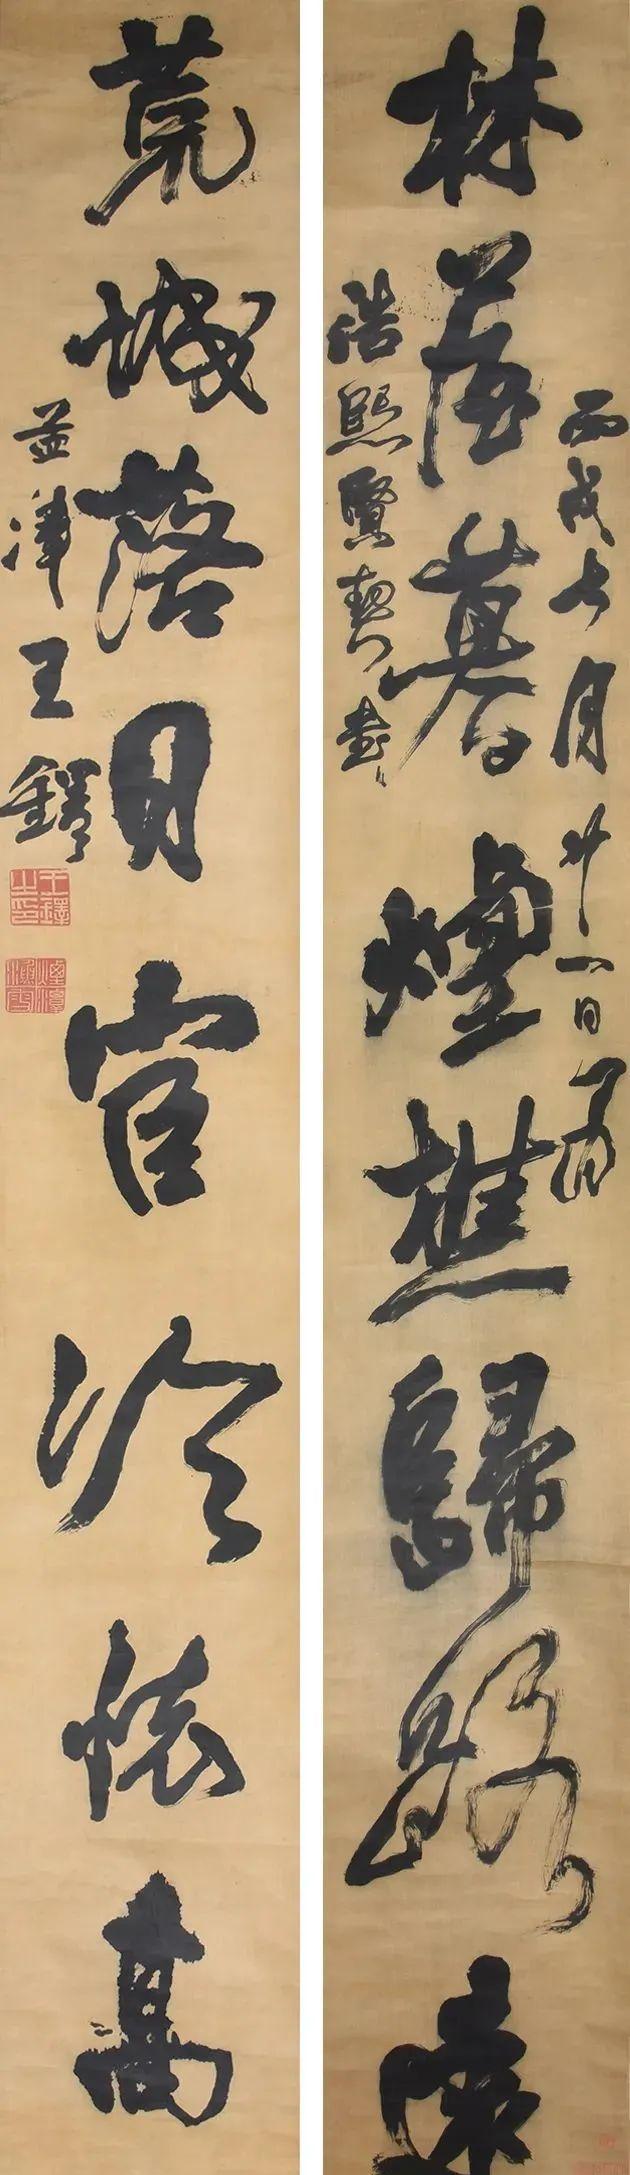 林暮煙樵歸路遠
丙戌七月廿一日為
熙賢契書
荒城落日宦冷懷高
孟津王鐸
王鐸之印
煙潭漁叟